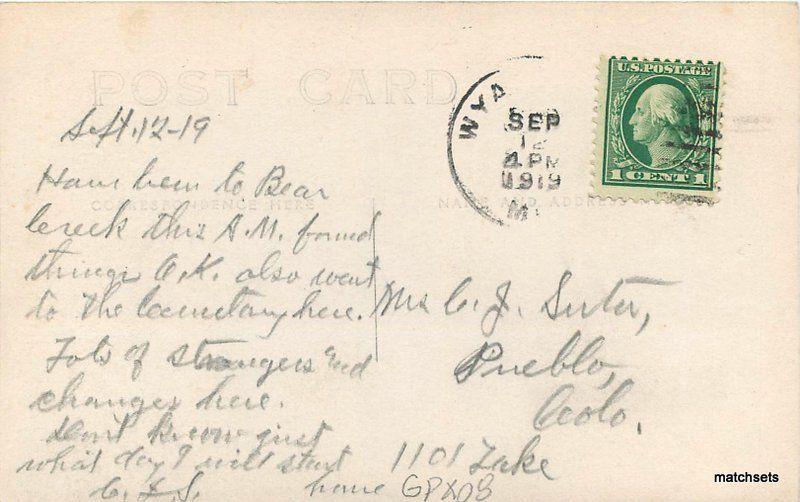 POST CARD
WYA
SEP
12
4 PM
1919
M
U.S. POSTAGE
1 CENT 1
Sept. 12-19
Have been to Bear
Creek this A.M. found
things O.K. also went
to the Cemetary here.
Lots of strangers and
changes here.
Dont know just
what day I will start
home
CORRESPONDENCE HERE
NAME AND ADDRESS
C. J. Suter,
Pueblo,
Colo.
1101 Lake
GPX08
matchsets